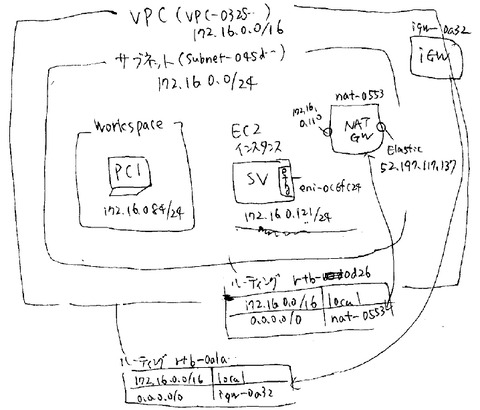 VPC (VPC-0325‥)
172.16.0.0/16
igw-0a32
iGW
サブネット (Subnet-045d‥)
172.16.0.0/24
nat-0553
172.16.
0.110
NAT
GW
Elastic
52.197.117.137
Workspace
PC1
172.16.0.84/24
EC2
インスタンス
SV
eni-0c6fc24
172.16.0.121/24
ルーティング rtb-0d26
172.16.0.0/16 local
0.0.0.0/0 nat-0553
ルーティング rtb-0a1a‥
172.16.0.0/16 local
0.0.0.0/0 igw-0a32